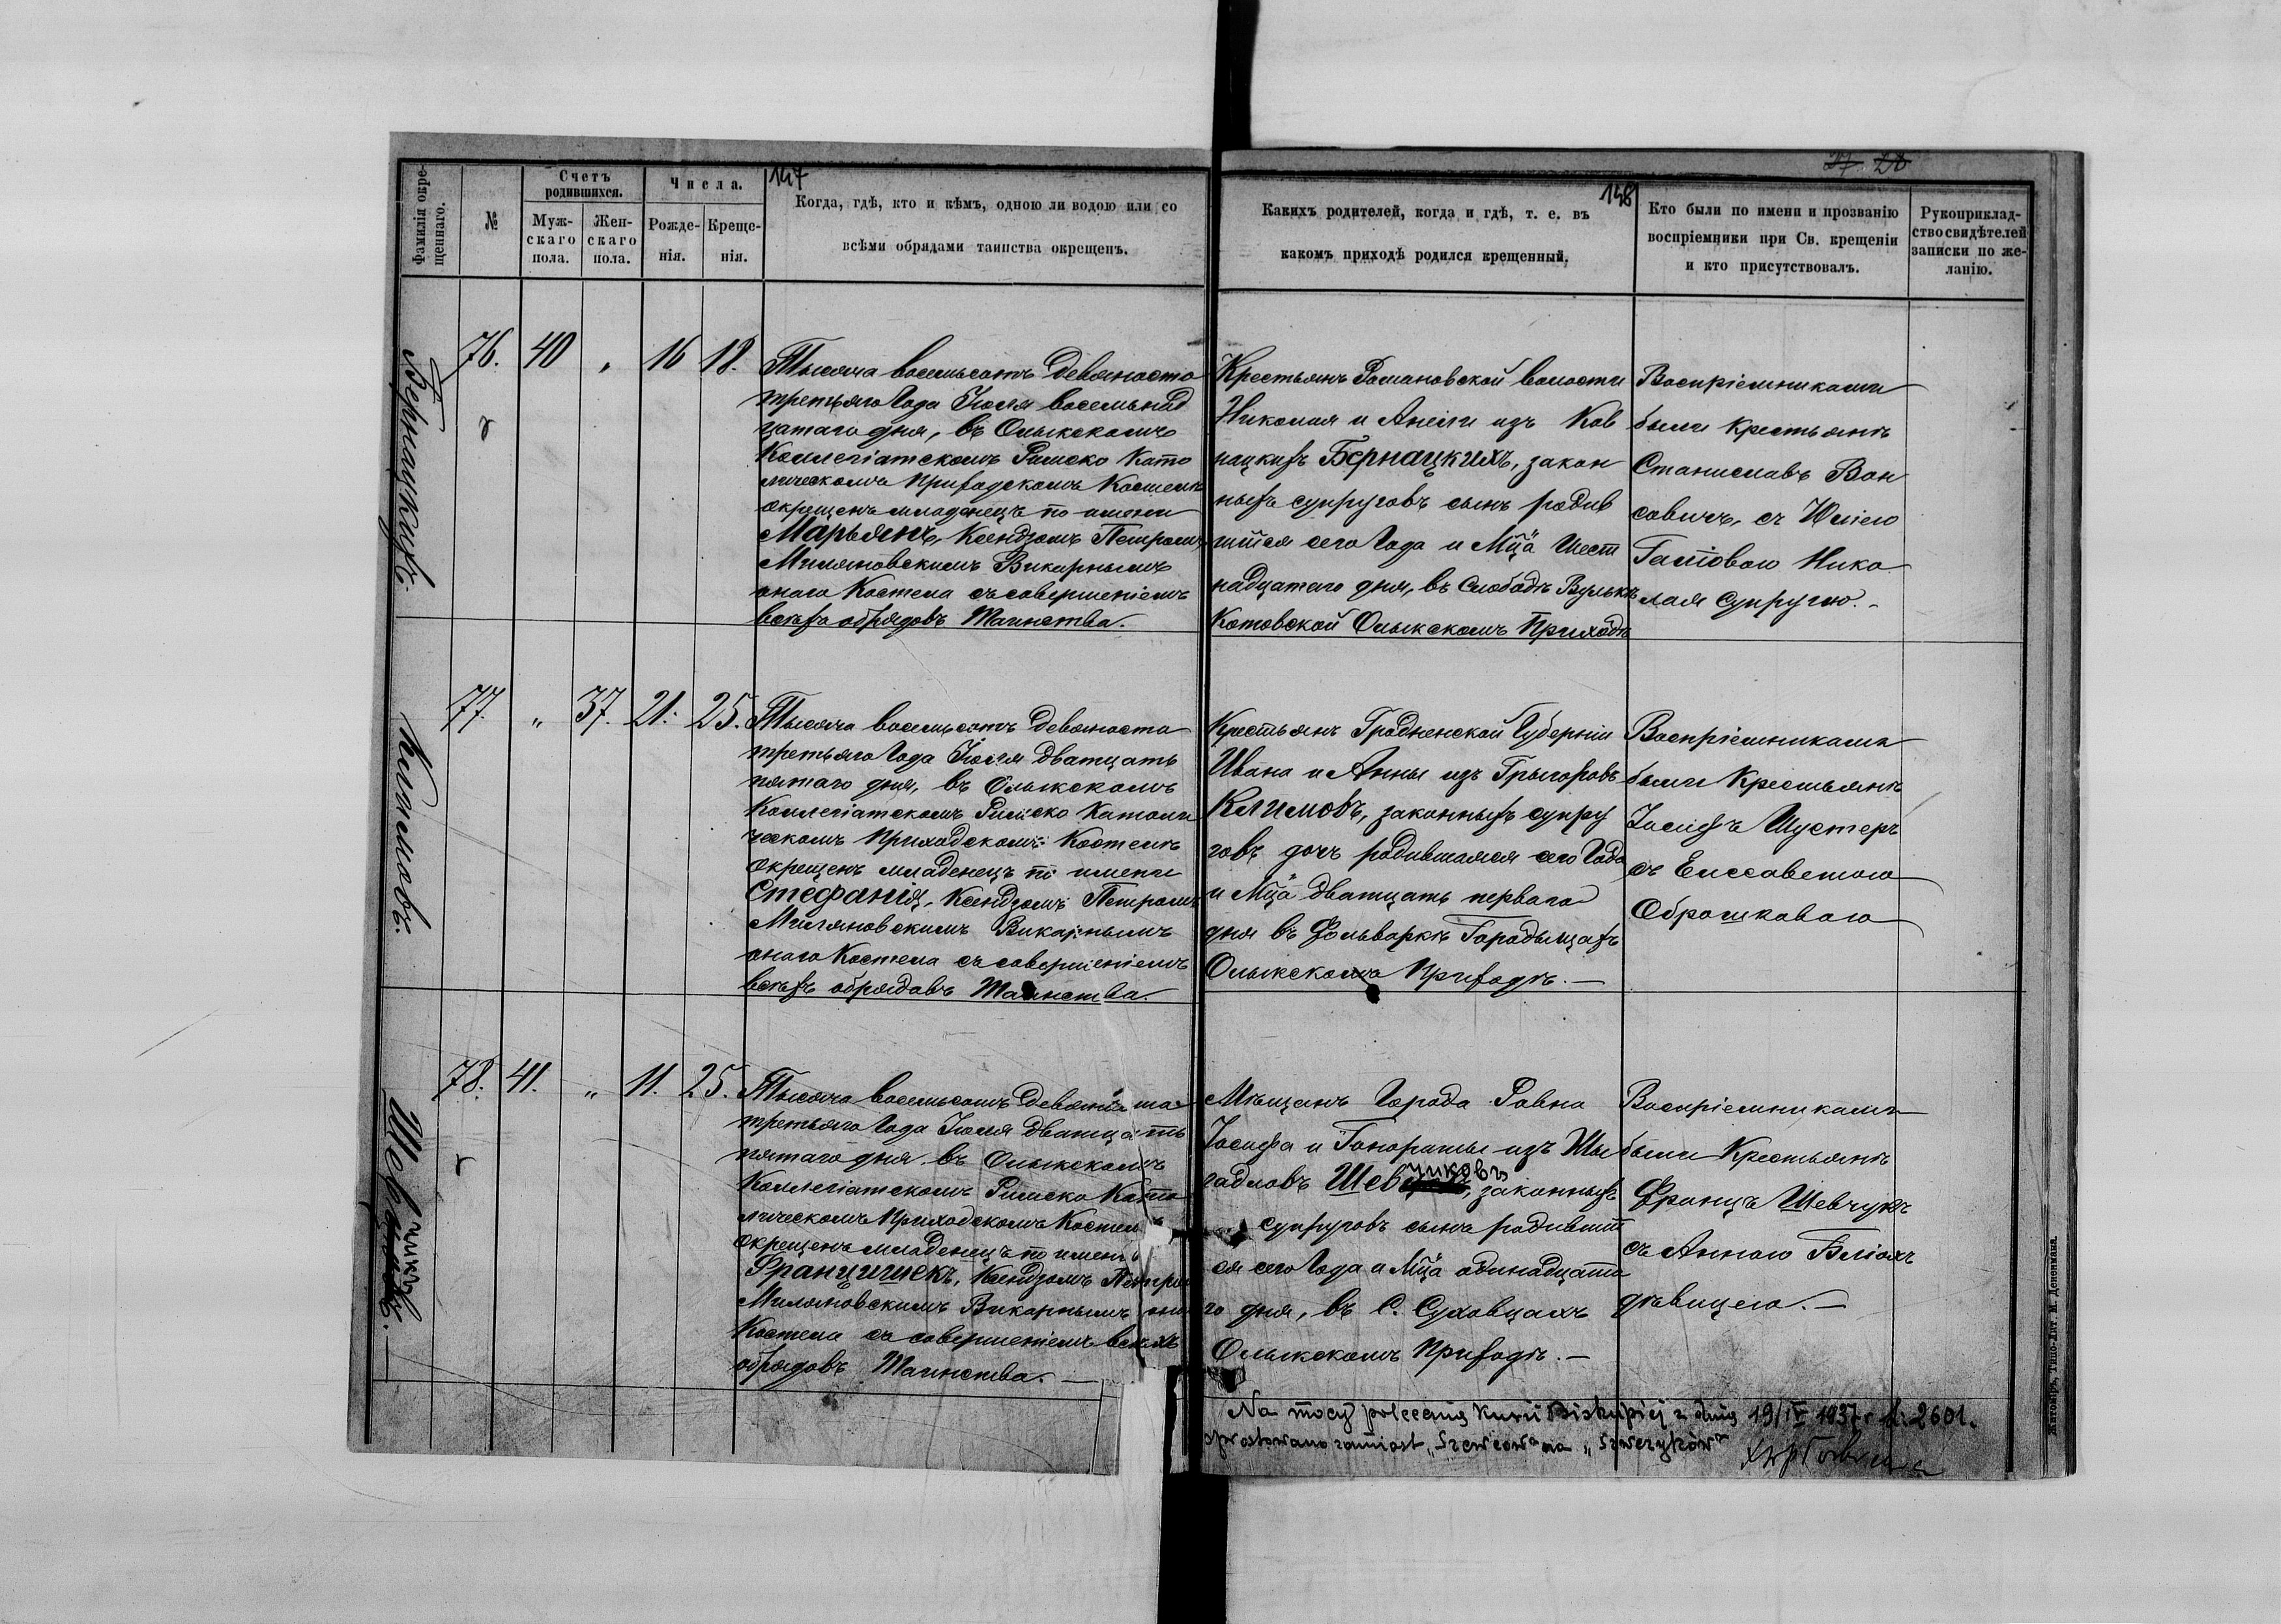 147
Фамилія окре-
щеннаго.
№
Счетъ
родившихся.
Муж-
скаго
пола.
Жен-
скаго
пола.
Числа.
Рожде-
нія.
Креще-
нія.
Когда, гдѣ, кто и кѣмъ, одною ли водою или со
всѣми обрядами таинства окрещенъ.
27 28
148
Какихъ родителей, когда и гдѣ, т. е. въ
какомъ приходѣ родился крещенный.
Кто были по имени и прозванію
воспріемники при Св. крещеніи
и кто присутствовалъ.
Рукоприклад-
ство свидѣтелей
записки по же-
ланію.
Бернацкихъ.
76. 40 „ 16 18.
Тысяча восемьсотъ девяносто
третьяго Года Іюля восемьнад
цатаго дня, въ Олыкскомъ
Коллегіатскомъ Римско Като
лическомъ Приходскомъ Костелѣ
окрещенъ младенецъ по имени
Марьянъ, Ксендзомъ Петромъ
Миляновскимъ Викарнымъ
онаго Костела съ совершеніемъ
всѣхъ обрядовъ Таинства.
Крестьянъ Романовской волости
Николая и Анели изъ Ков
нацкихъ Бернацкихъ, закон
ныхъ супруговъ сынъ родив
шійся сего Года и Мца Шест
надцатаго дня, въ Слободѣ Вулькѣ
Котовской Олыкскомъ Приходѣ
Воспріемниками
были крестьянъ
Станиславъ Вон
совичъ, съ Юліею
Николая Супругою.
Климовъ.
77. „ 37. 21. 25.
Тысяча восемьсотъ девяносто
третьяго Года Іюля двацать
пятаго дня, въ Олыкскомъ
Коллегіатскомъ Римско Католи
ческомъ Приходскомъ Костелѣ
окрещенъ младенецъ по имени
Стефанія, Ксендзомъ Петромъ
Миляновскимъ Викарнымъ
онаго Костела съ совершеніемъ
всѣхъ обрядовъ Таинства.
Крестьянъ Гродненской Губерніи
Ивана и Анны изъ Грыгоровъ
Климовъ, законныхъ супру
говъ дочь родившаяся сего Года
и Мца двацать перваго
дня въ Фольваркѣ Городыщахъ
Олыкскомъ Приходѣ.—
Воспріемниками
были Крестьянъ
Іосифъ Шустеръ
съ Елисаветою
Шевчиковъ.
78. 41. „ 11. 25.
Тысяча восемьсотъ девяноста
третьяго Года Іюля двацать
пятаго дня, въ Олыкскомъ
Коллегіатскомъ Римско Като
лическомъ Приходскомъ Костелѣ
окрещенъ младенецъ по имени
Францишекъ, Ксендзомъ Петром
Миляновскимъ Викарнымъ она
Костела съ совершеніемъ всѣхъ
обрядовъ Таинства.—
Мѣщанъ Города Ровна
Іосифа и Гонораты изъ Шы
гадловъ Шевчиковъ, законныхъ
супруговъ сынъ родивший
ся сего Года и Мца одинадцата
го дня, въ С. Суховцахъ
Олыкскомъ Приходѣ.—
Воспріемниками
были Крестьянъ
Францъ Шевчукъ
съ Анною
дѣвицею.—
Na mocy polecenia Kurii Biskupiej z dnia 19/IV 1937 r. L: 2601.
sprostowano zamiast „Szewców" na „Szewczyków"
Житоміръ, Типо-Лит. М. Дененмана.